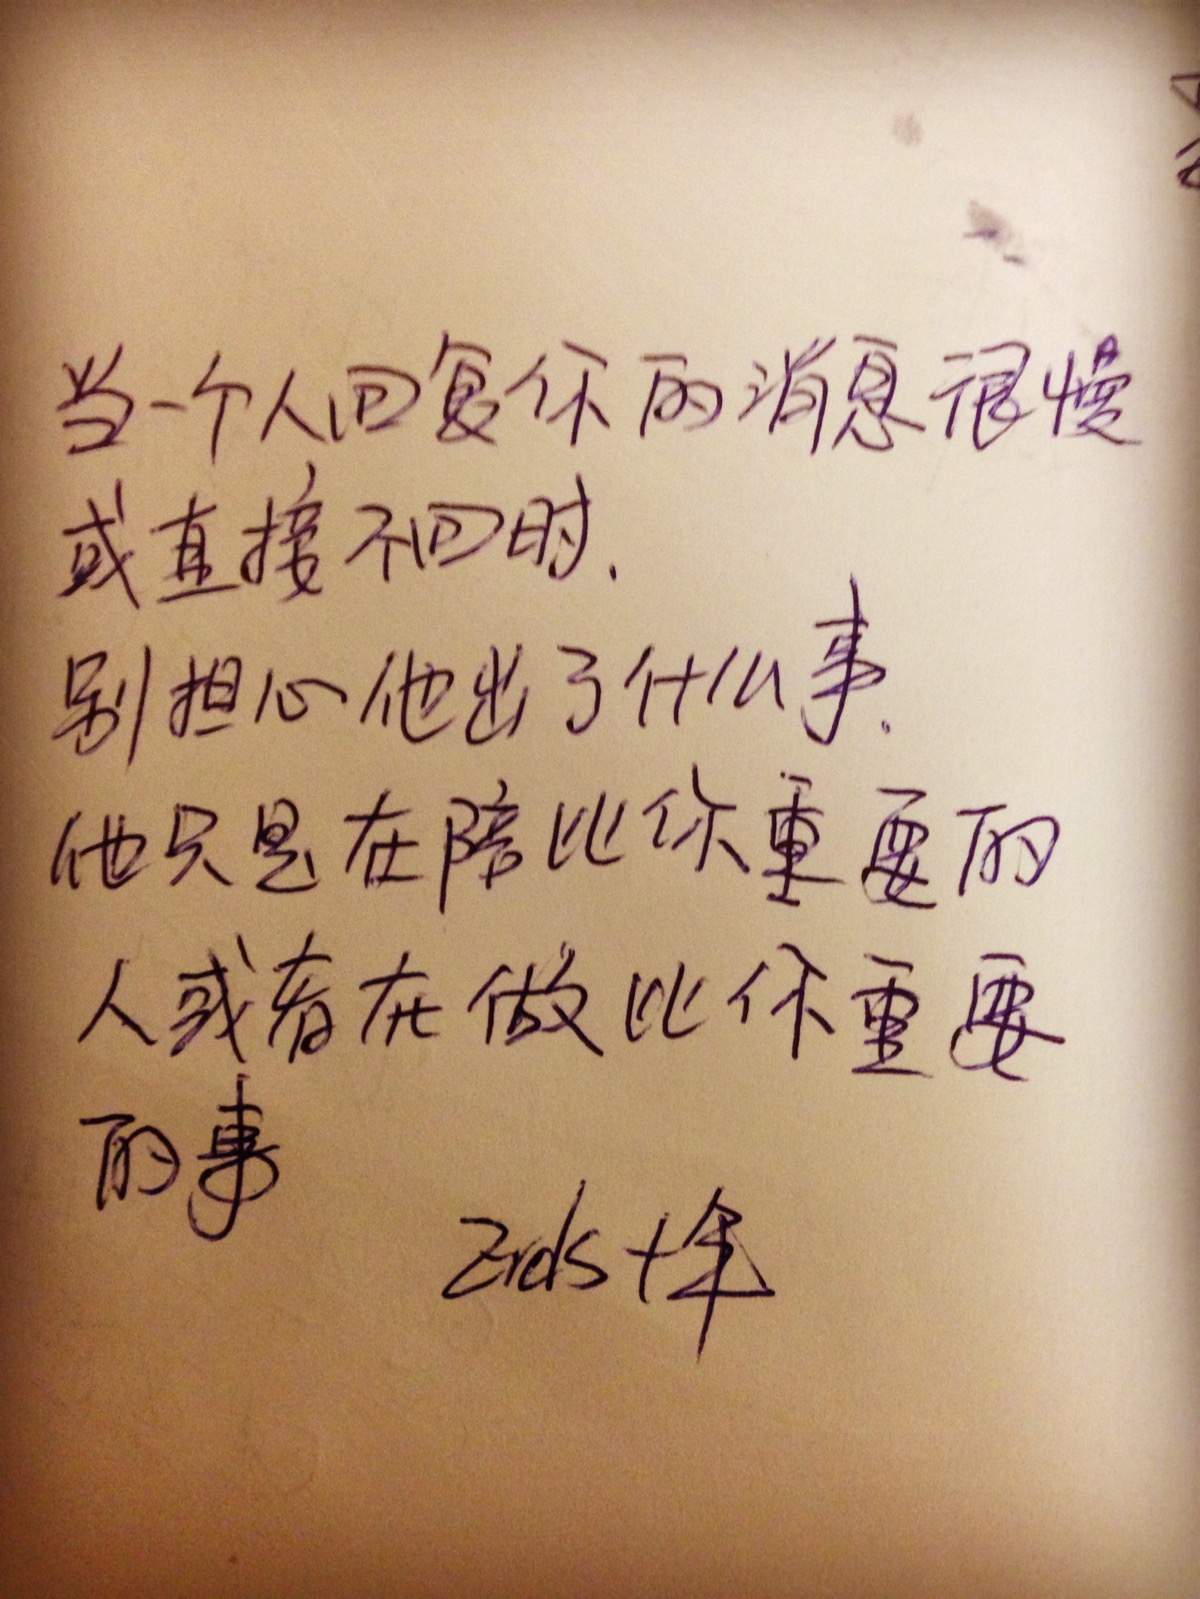 当一个人回复你的消息很慢
或直接不回时.
别担心他出了什么事.
他只是在陪比你重要的
人或者在做比你重要
的事
Zrds 十年